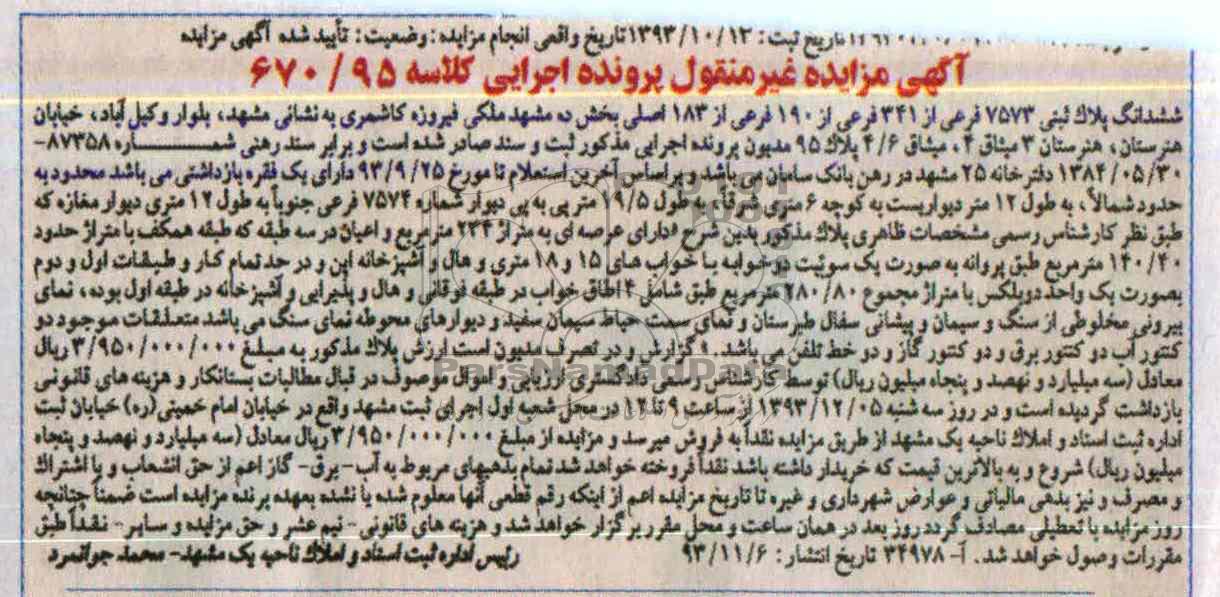 تاریخ ثبت: ۱۳۹۳/۱۰/۱۳ تاریخ واقعی انجام مزایده: وضعیت: تأیید شده آگهی مزایده
آگهی مزایده غیرمنقول پرونده اجرایی کلاسه ۶۷۰/۹۵
ششدانگ پلاک ثبتی ۷۵۷۳ فرعی از ۳۴۱ فرعی از ۱۹۰ فرعی از ۱۸۳ اصلی بخش ده مشهد ملکی فیروزه کاشمری به نشانی مشهد، بلوار وکیل آباد، خیابان
هنرستان، هنرستان ۳ میثاق ۴، میثاق ۴/۶ پلاک ۹۵ مدیون پرونده اجرایی مذکور ثبت و سند صادر شده است و برابر سند رهنی شمــــاره ۸۷۳۵۸-
۱۳۸۴/۰۵/۳۰ دفترخانه ۲۵ مشهد در رهن بانک سامان می باشد و براساس آخرین استعلام تا مورخ ۹۳/۹/۲۵ دارای یک فقره بازداشتی می باشد محدود به
حدود شمالاً، به طول ۱۲ متر دیواریست به کوچه ۶ متری شرقاً، به طول ۱۹/۵ متر پی به پی دیوار شماره ۷۵۷۴ فرعی جنوباً به طول ۱۲ متری دیوار مغازه که
طبق نظر کارشناس رسمی مشخصات ظاهری پلاک مذکور بدین شرح «دارای عرصه ای به متراژ ۲۳۴ مترمربع و اعیان در سه طبقه که طبقه همکف با متراژ حدود
۱۴۰/۴۰ مترمربع طبق پروانه به صورت یک سوئیت دوخوابه با خواب های ۱۵ و ۱۸ متری و هال و آشپزخانه اپن و در حد تمام کار و طبقات اول و دوم
بصورت یک واحد دوبلکس با متراژ مجموع ۲۸۰/۸۰ مترمربع طبق شامل ۴ اطاق خواب در طبقه فوقانی و هال و پذیرایی و آشپزخانه در طبقه اول بوده، نمای
بیرونی مخلوطی از سنگ و سیمان و پیشانی سفال طبرستان و نمای سمت حیاط سیمان سفید و دیوارهای محوطه نمای سنگ می باشد متعلقات موجود دو
کنتور آب دو کنتور برق و دو کنتور گاز و دو خط تلفن می باشد.» گزارش و در تصرف مدیون است ارزش پلاک مذکور به مبلغ ۳/۹۵۰/۰۰۰/۰۰۰ ریال
معادل (سه میلیارد و نهصد و پنجاه میلیون ریال) توسط کارشناس رسمی دادگستری ارزیابی و اموال موصوف در قبال مطالبات بستانکار و هزینه های قانونی
بازداشت گردیده است و در روز سه شنبه ۱۳۹۳/۱۲/۰۵ از ساعت ۹ تا ۱۲ در محل شعبه اول اجرای ثبت مشهد واقع در خیابان امام خمینی(ره) خیابان ثبت
اداره ثبت اسناد و املاک ناحیه یک مشهد از طریق مزایده نقداً به فروش میرسد و مزایده از مبلغ ۳/۹۵۰/۰۰۰/۰۰۰ ریال معادل (سه میلیارد و نهصد و پنجاه
میلیون ریال) شروع و به بالاترین قیمت که خریدار داشته باشد نقداً فروخته خواهد شد تمام بدهیهای مربوط به آب- برق- گاز اعم از حق انشعاب و یا اشتراک
و مصرف و نیز بدهی مالیاتی و عوارض شهرداری و غیره تا تاریخ مزایده اعم از اینکه رقم قطعی آنها معلوم شده یا نشده بعهده برنده مزایده است ضمناً چنانچه
روز مزایده با تعطیلی مصادف گردد روز بعد در همان ساعت و محل مقرر برگزار خواهد شد و هزینه های قانونی- نیم عشر و حق مزایده و سایر- نقداً طبق
مقررات وصول خواهد شد. آ- ۳۴۹۷۸ تاریخ انتشار: ۹۳/۱۱/۶
رئیس اداره ثبت اسناد و املاک ناحیه یک مشهد- محمد جوانمرد
ParsNamadData